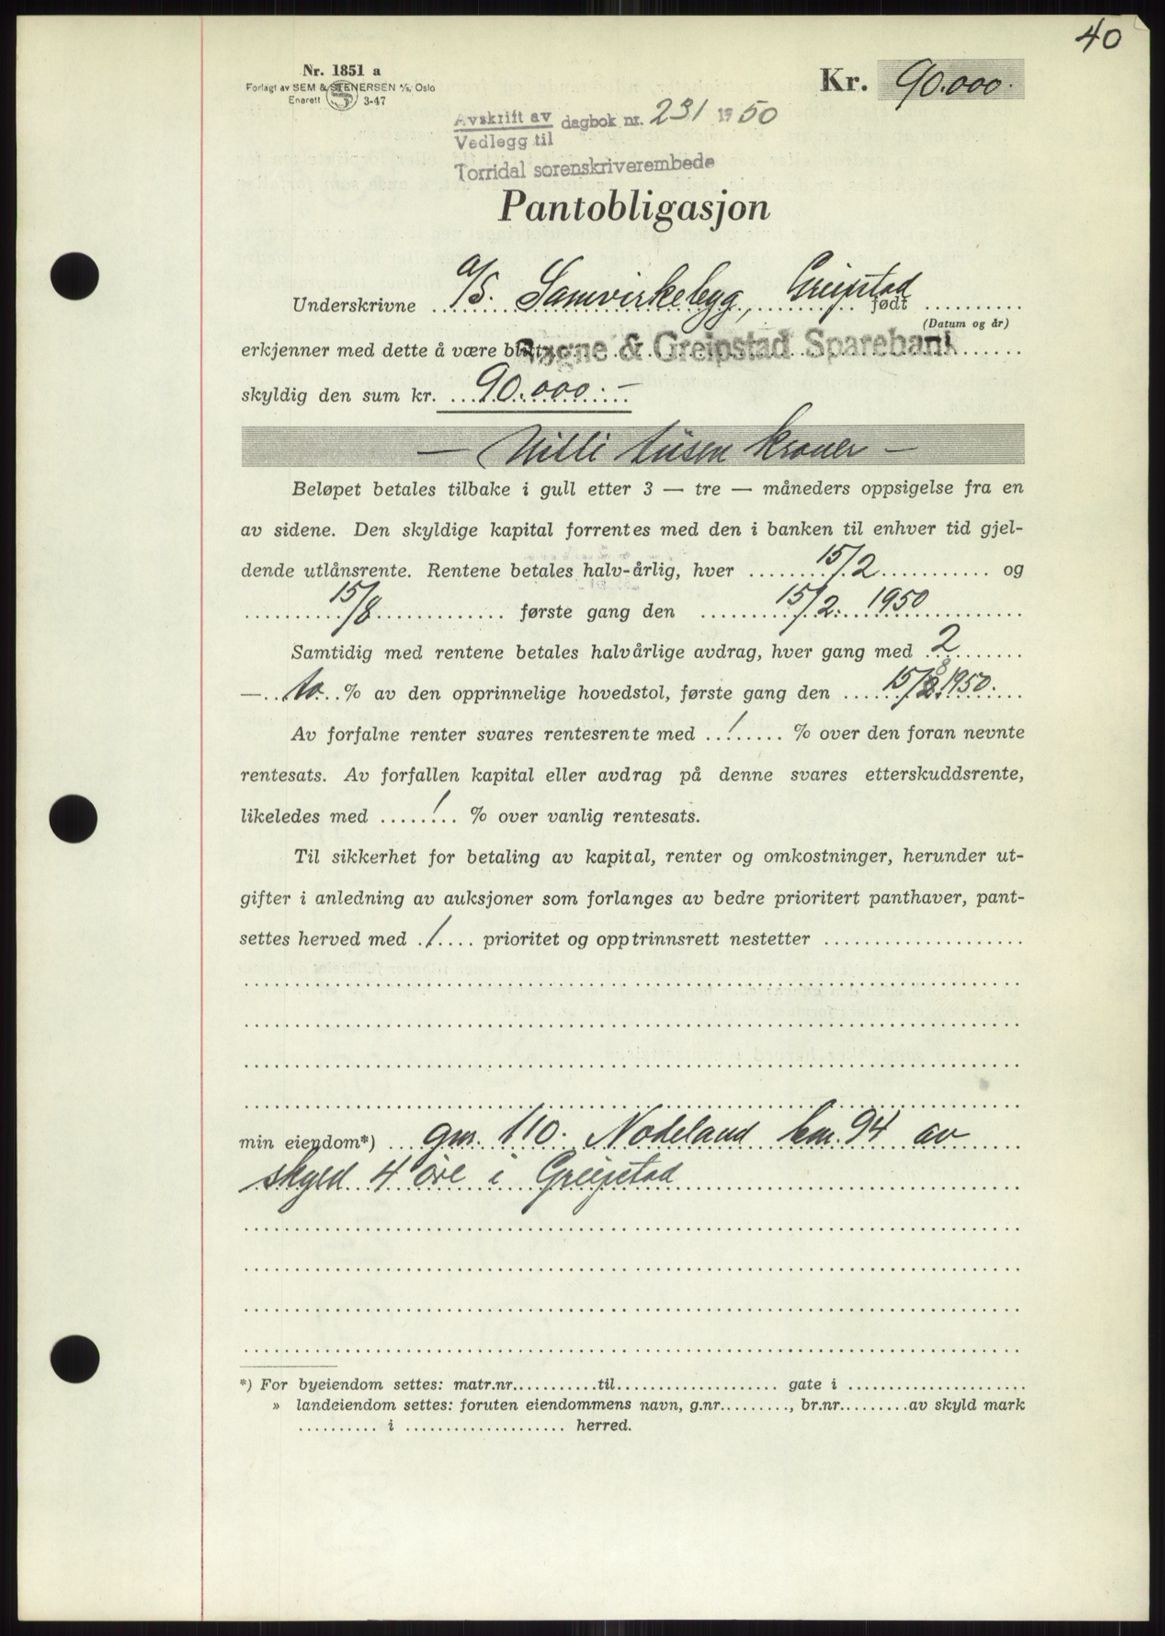 40
Nr. 1851 a
Forlagt av SEM & STENERSEN A/S, Oslo
Enerett S 3-47
Kr. 90.000.
Avskrift av dagbok nr. 231 1950
Vedlegg til
Torridal sorenskriverembede
Pantobligasjon
Underskrivne A/S. Samvirkebygg, Greipstad født
(Datum og år)
erkjenner med dette å være blitt Søgne & Greipstad Sparebank
skyldig den sum kr. 90.000.-
- Nitti tusen kroner -
Beløpet betales tilbake i gull etter 3 — tre — måneders oppsigelse fra en
av sidene. Den skyldige kapital forrentes med den i banken til enhver tid gjel-
dende utlånsrente. Rentene betales halv-årlig, hver 15/2 og
15/8 første gang den 15/2. 1950
Samtidig med rentene betales halvårlige avdrag, hver gang med 2
— to % av den opprinnelige hovedstol, første gang den 15/8 1950.
Av forfalne renter svares rentesrente med 1 % over den foran nevnte
rentesats. Av forfallen kapital eller avdrag på denne svares etterskuddsrente,
likeledes med 1 % over vanlig rentesats.
Til sikkerhet for betaling av kapital, renter og omkostninger, herunder ut-
gifter i anledning av auksjoner som forlanges av bedre prioritert panthaver, pant-
settes herved med 1 prioritet og opptrinnsrett nestetter
min eiendom*) gnr. 110. Nodeland bnr. 94 av
skyld 4 øre i Greipstad
*) For byeiendom settes: matr.nr. til gate i
» landeiendom settes: foruten eiendommens navn, g.nr. , br.nr. av skyld mark
i herred.